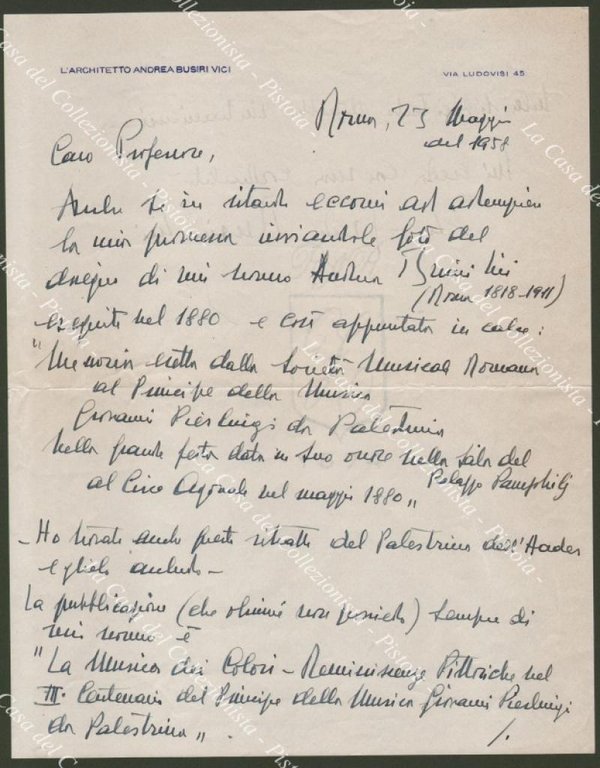 L'ARCHITETTO ANDREA BUSIRI VICI
VIA LUDOVISI 45
Roma, 23 Maggio
del 1958
Caro Professore,
Anche se in ritardo eccomi ad adempiere
la mia promessa inviandole foto del
disegno di mio nonno Andrea Busiri Vici
(Roma 1818-1911)
eseguito nel 1880 e così appuntata in calce:
"Memoria eretta dalla Società Musicale Romana
al Principe della Musica
Giovanni Pierluigi da Palestrina
nella grande festa data in suo onore nella sala del
Palazzo Pamphilj
al Circo Agonale nel maggio 1880"
- Ho trovato anche questo ritratto del Palestrina dell'
e glielo accludo -
La pubblicazione (che ohimè non possiedo) sempre di
mio nonno è
"La Musica dei Colori - Reminiscenze Pittoriche nel
III° Centenario del Principe della Musica Giovanni Pierluigi
da Palestrina".
./.
La Casa del Collezionista - Pistoia -